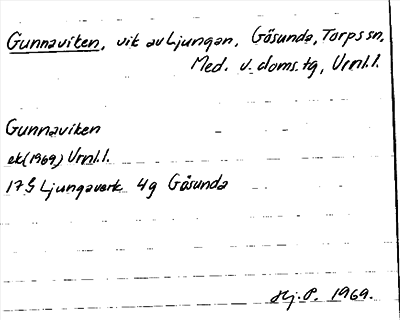 Gunnaviken, vik av Ljungan, Gösunda, Torps sn,
Med. v. doms. tg, Vrnl. l.
Gunnaviken
ek (1969) Vrnl. l.
17 G Ljungaverk 4g Gösunda
Hj. P. 1969.